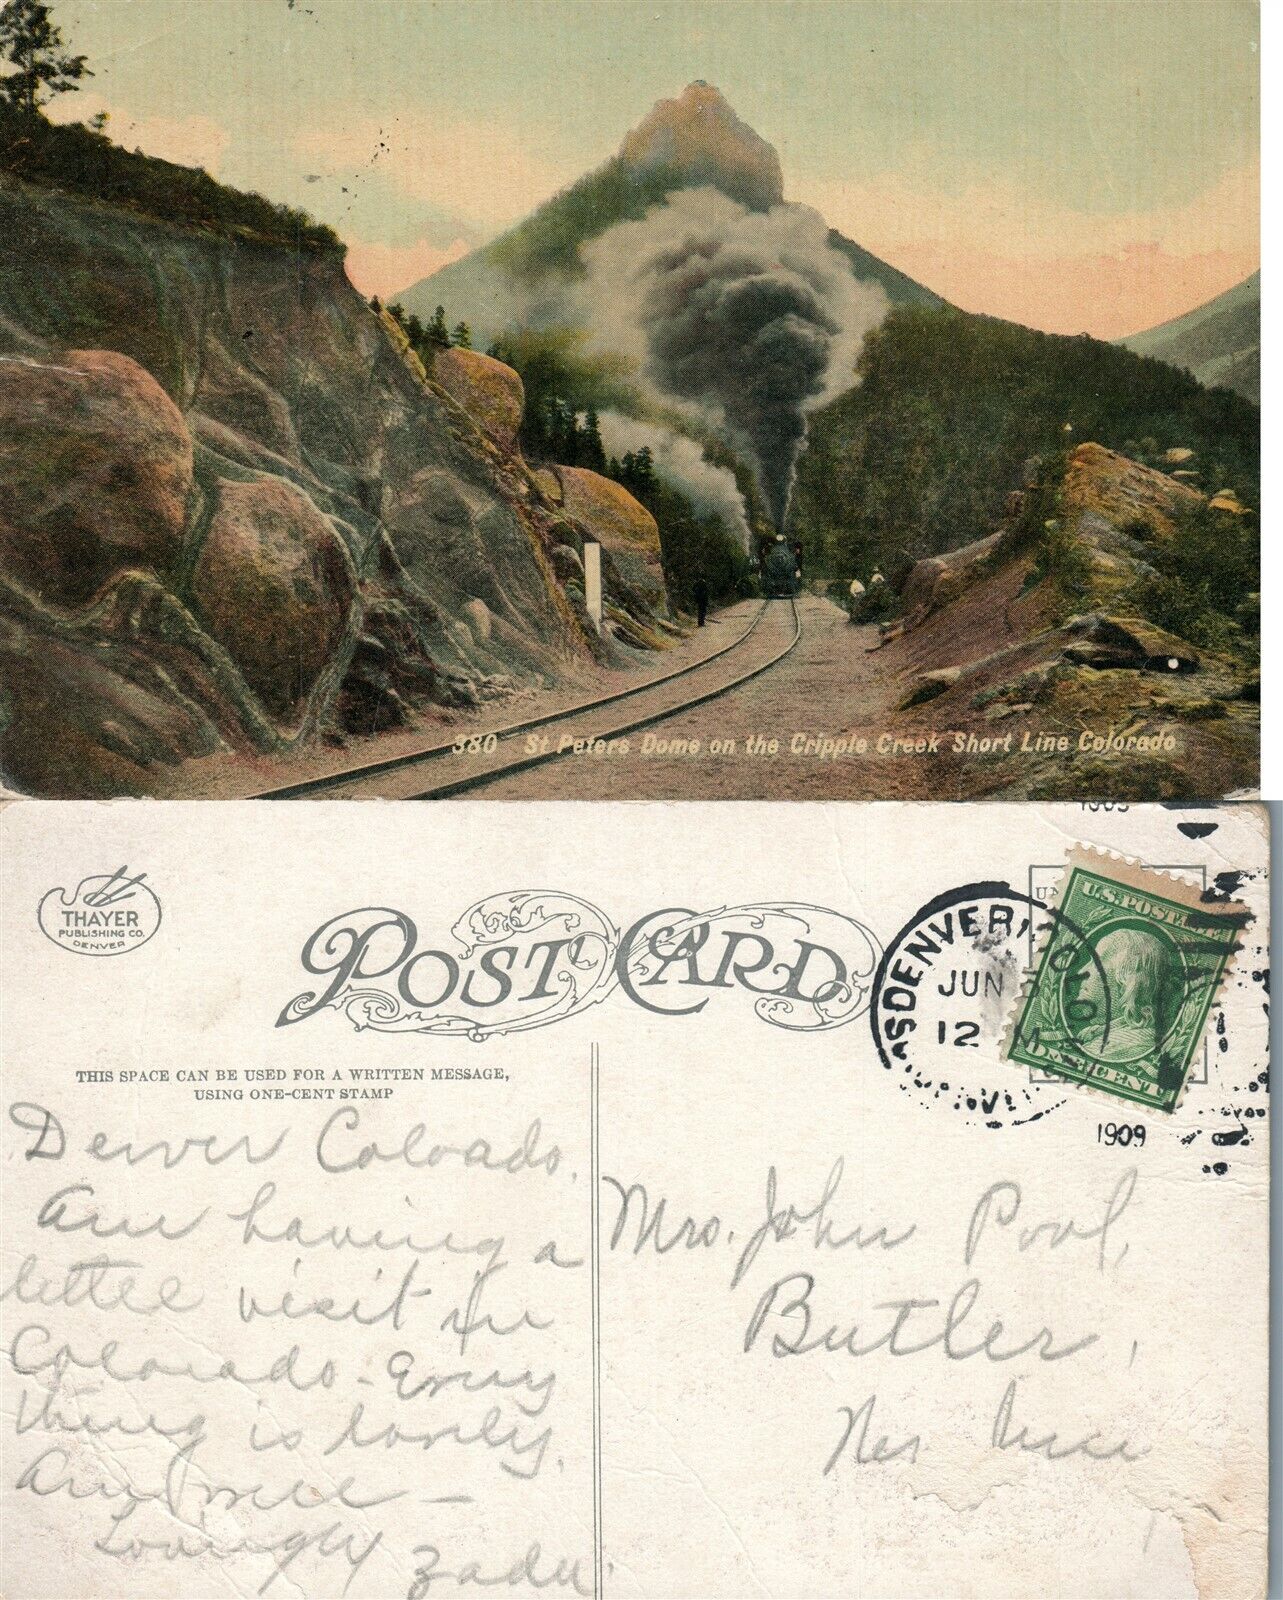 380 St Peters Dome on the Cripple Creek Short Line Colorado
THAYER
PUBLISHING CO.
DENVER
POST CARD
U.S. POSTAGE
DENVER, COLO.
JUN
12 M
1909
THIS SPACE CAN BE USED FOR A WRITTEN MESSAGE,
USING ONE-CENT STAMP
Denver Colorado.
Am having a
little visit in
Colorado - Every
thing is lovely.
Am well -
Lovingly Zadu.
Mrs. John Pool,
Butler,